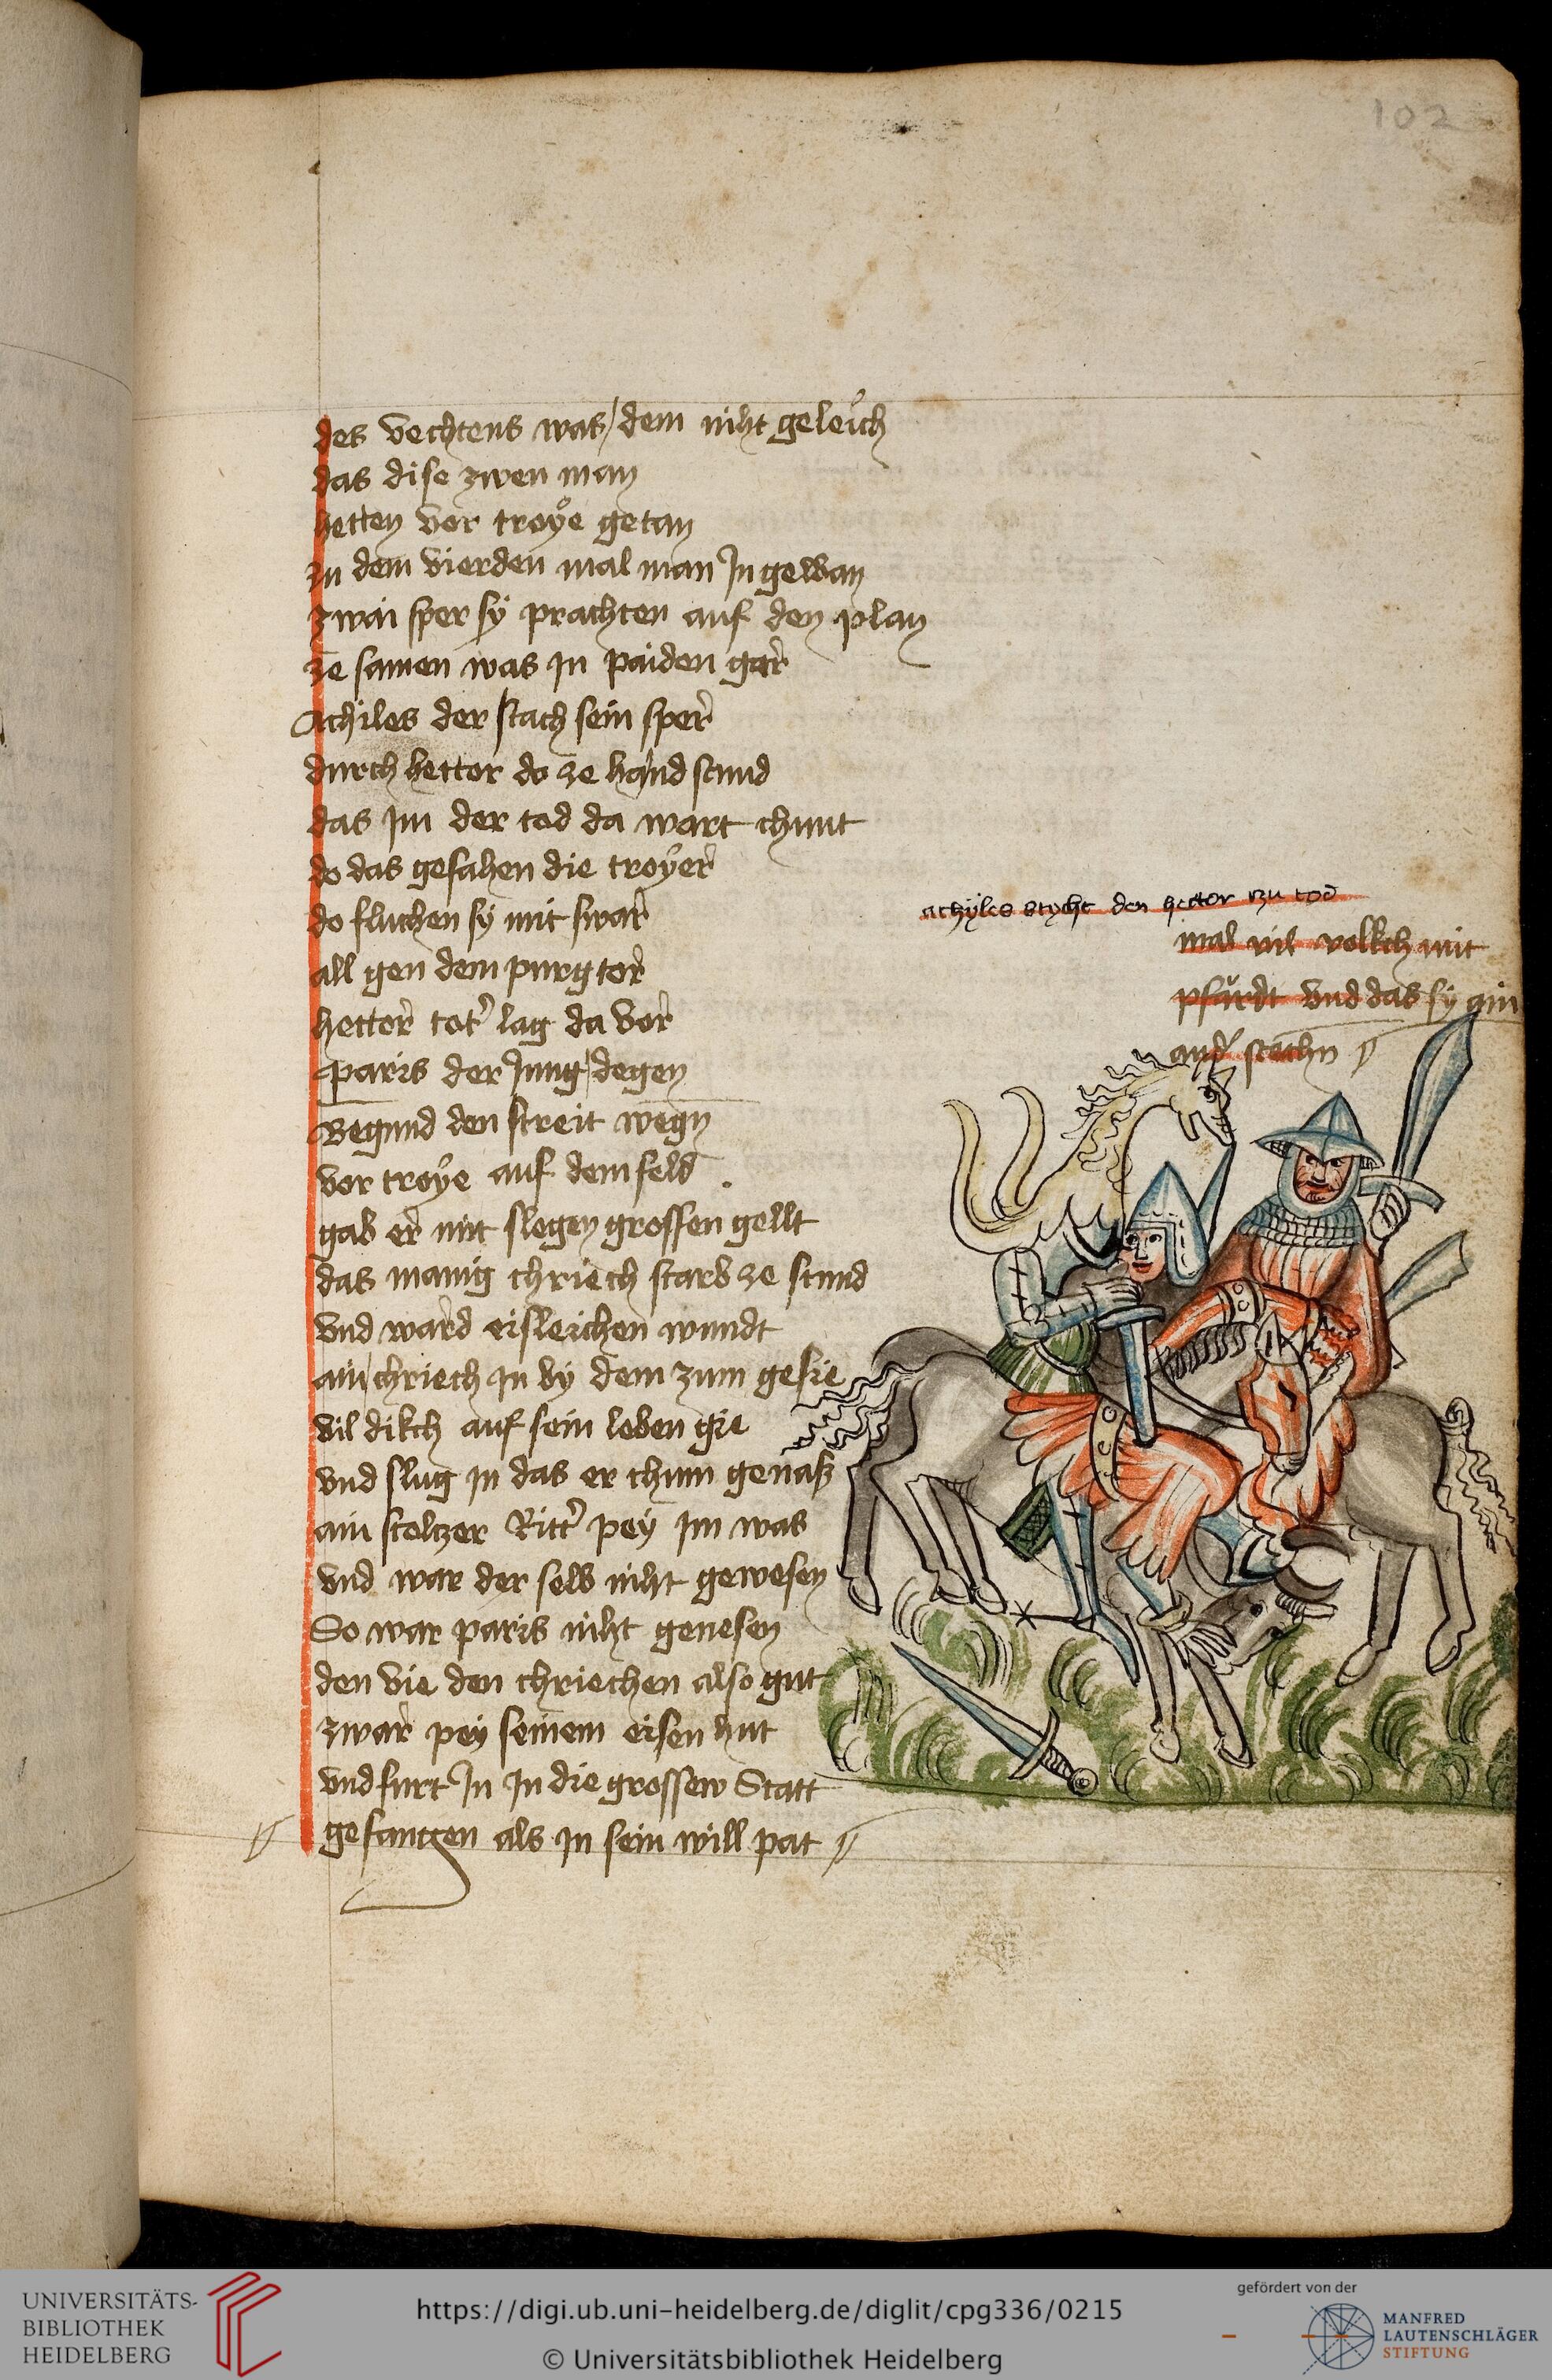 102
des vechtens was / dem niht geleich
das dise zwen man
hetten vor troye getan
zu dem vierden mal man In gewan
zwai sper sy prachten auf den plan
ze samen was in paiden ger
Achiles der stach sein sper
durch hettor do ze hand stund
das im der tod da wart chunt
do das gesahen die troyer
do fluchen sy mit swar
all gen dem purgtor
hettor tot lag da vor
paris der Jung degen
Begund den streit wegn
vor troye auf dem feld
gab er mit slegen grossen gellt
das manig chriech starb ze stund
vnd ward eisleichen wundt
ain chriech in by dem zum gefie
vil dikch auf sein leben gie
vnd slug in das er chum genass
ain stoltzer Ritter pey im was
vnd war der selb niht gewesen
So war paris niht genesen
den vie den chriechen also gut
zwar pey seinem eisen hut
vnd furt In In die grossew Statt
gefangen als in sein will pat
achyles stycht den hector zu tod
mal vil volkch mit
pfärdt vnd das sy ain
ander stechn
UNIVERSITÄTS-
BIBLIOTHEK
HEIDELBERG
https://digi.ub.uni-heidelberg.de/diglit/cpg336/0215
© Universitätsbibliothek Heidelberg
gefördert von der
MANFRED
LAUTENSCHLÄGER
STIFTUNG